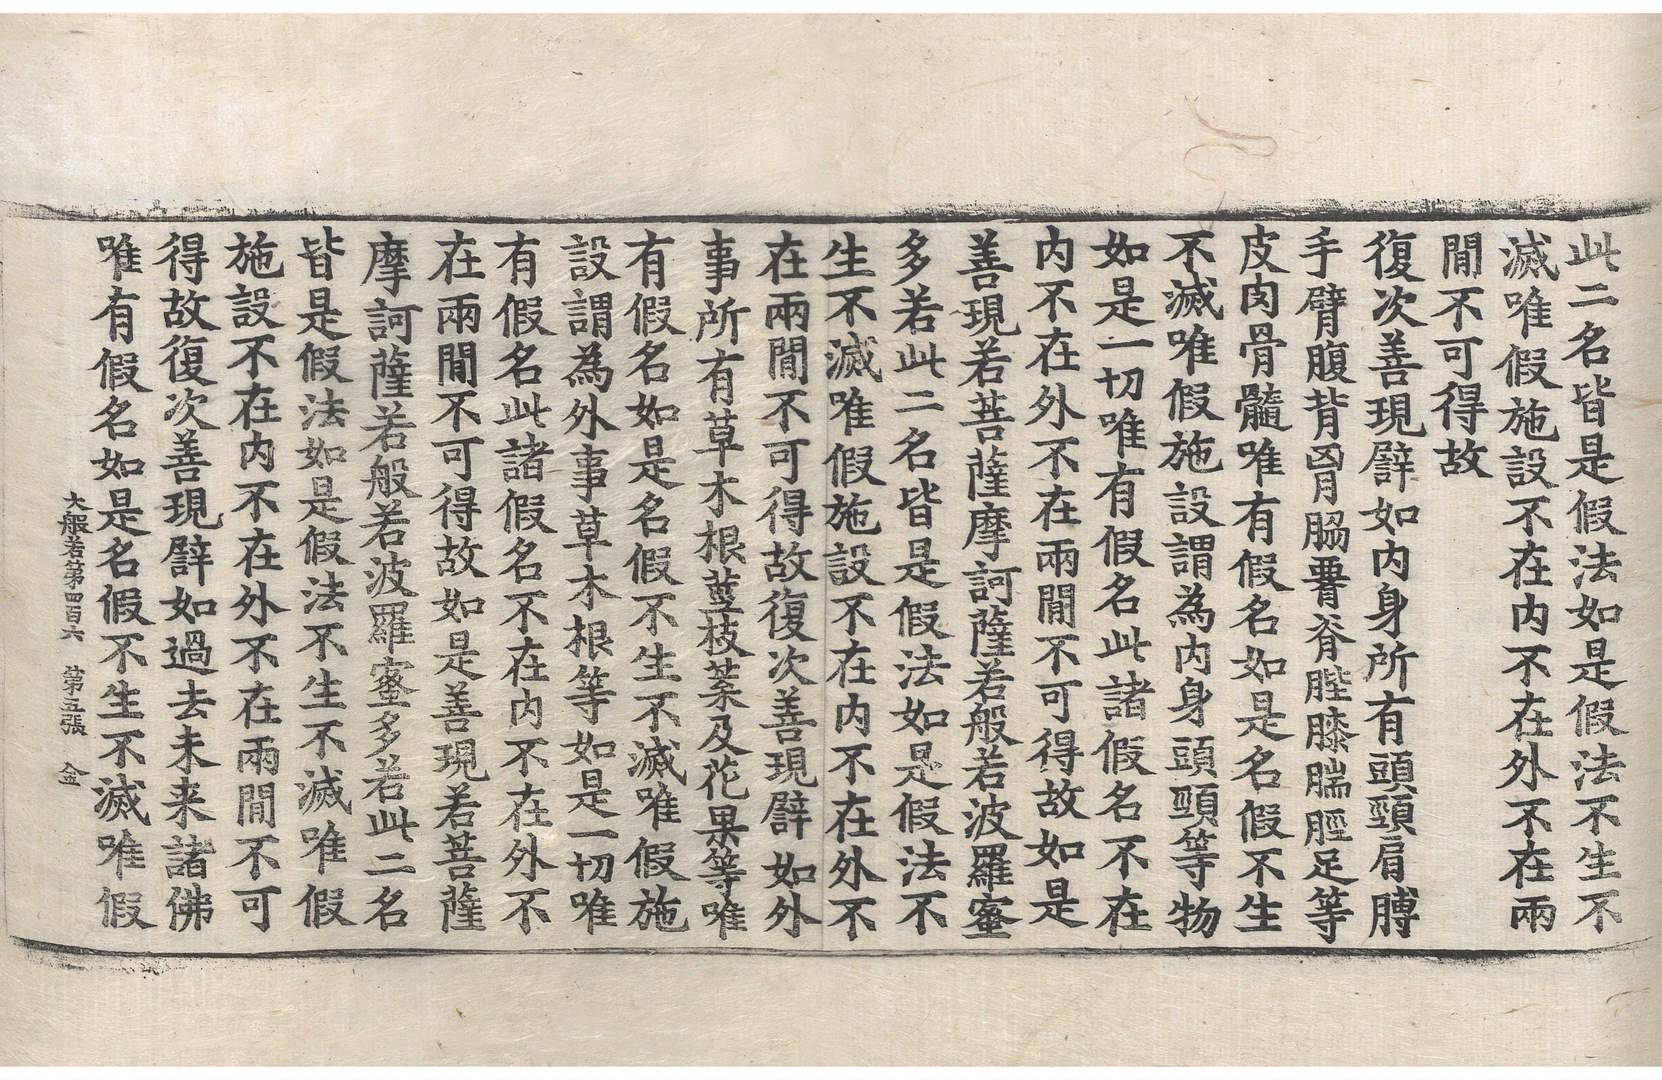 此二名皆是假法如是假法不生不
滅唯假施設不在內不在外不在兩
閒不可得故
復次善現譬如內身所有頭頸肩膊
手臂腹背胷脇腰脊䏶膝腨脛足等
皮肉骨髓唯有假名如是名假不生
不滅唯假施設謂為內身頭頸等物
如是一切唯有假名此諸假名不在
內不在外不在兩閒不可得故如是
善現若菩薩摩訶薩若般若波羅蜜
多若此二名皆是假法如是假法不
生不滅唯假施設不在內不在外不
在兩閒不可得故復次善現譬如外
事所有草木根莖枝葉及花果等唯
有假名如是名假不生不滅唯假施
設謂為外事草木根等如是一切唯
有假名此諸假名不在內不在外不
在兩閒不可得故如是善現若菩薩
摩訶薩若般若波羅蜜多若此二名
皆是假法如是假法不生不滅唯假
施設不在內不在外不在兩閒不可
得故復次善現譬如過去未来諸佛
唯有假名如是名假不生不滅唯假
大般若第四百六 第五張 金